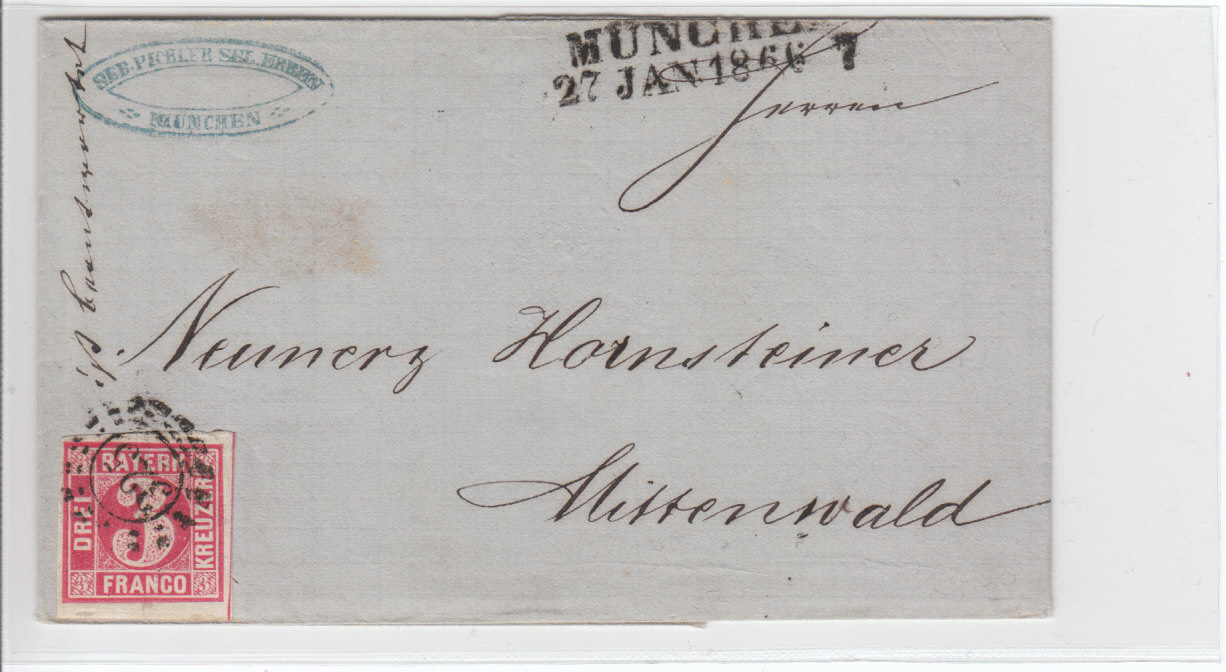 SEB. PICHLER SEL. ERBEN
MÜNCHEN
MÜNCHEN
27 JAN 1866 7
Herren
Neunerz Hornsteiner
Mittenwald
BAYERN
DREI
3
KREUZER
3 FRANCO 3